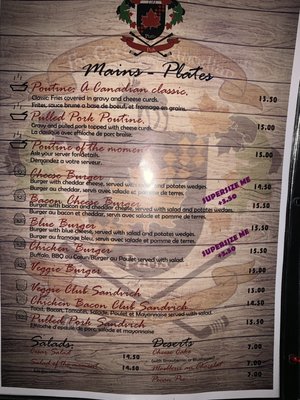 Mains - Plates
Poutine; A Canadian classic.
Classic Fries covered in gravy and cheese curds. 13.50
Frites, sauce brune a base de boeuf, et fromage en grains.
Pulled Pork Poutine.
Gravy and pulled pork topped with cheese curds. 15.00
La classique avec effiloche de porc braise.
Poutine of the moment
Ask your server for details. 15.00
Demandez a votre serveur.
Cheese Burger
Burger with cheddar cheese, served with salad and potatoes wedges. 14.50
Burger au cheddar, servis avec salade et pomme de terres.
SUPERSIZE ME
+3.50
Bacon Cheese Burger
Burger with bacon and cheddar cheese, served with salad and potatoes wedges. 15.50
Burger au bacon et cheddar, servis avec salade et pomme de terres.
Blue Burger
Burger with blue cheese, served with salad and potatoes wedges. 15.50
Burger au fromage bleu, servis avec salade et pomme de terres.
SUPERSIZE ME
Chicken Burger
Buffalo, BBQ ou Cajun/Burger au Poulet served with salad. 15.50
Veggie Burger
Veggie Club Sandwich
Chicken Bacon Club Sandwich
Toad, Bacon, Tomatos, Salade, Poulet et Mayonnaise served with salad.
Pulled Pork Sandwich
Effiloche d'epaule de porc, salade et mayonnaise
Salads
Deserts
14.50
Cheese Cake 7.00
Salad of the moment 14.50
7.00
Pecan Pie 7.00